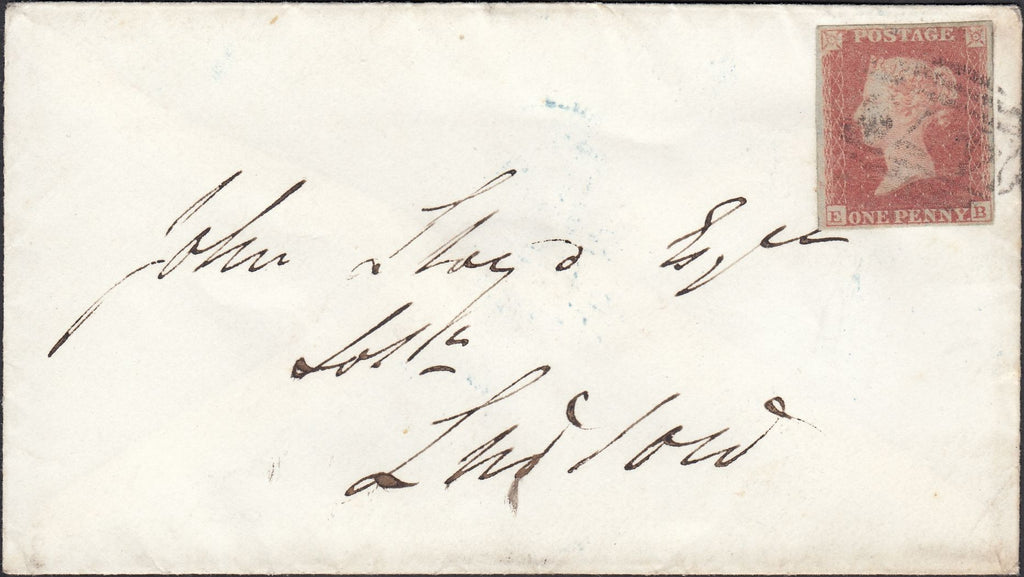 POSTAGE
ONE PENNY
E B
John Lloyd Esqre
Solr
Ludlow